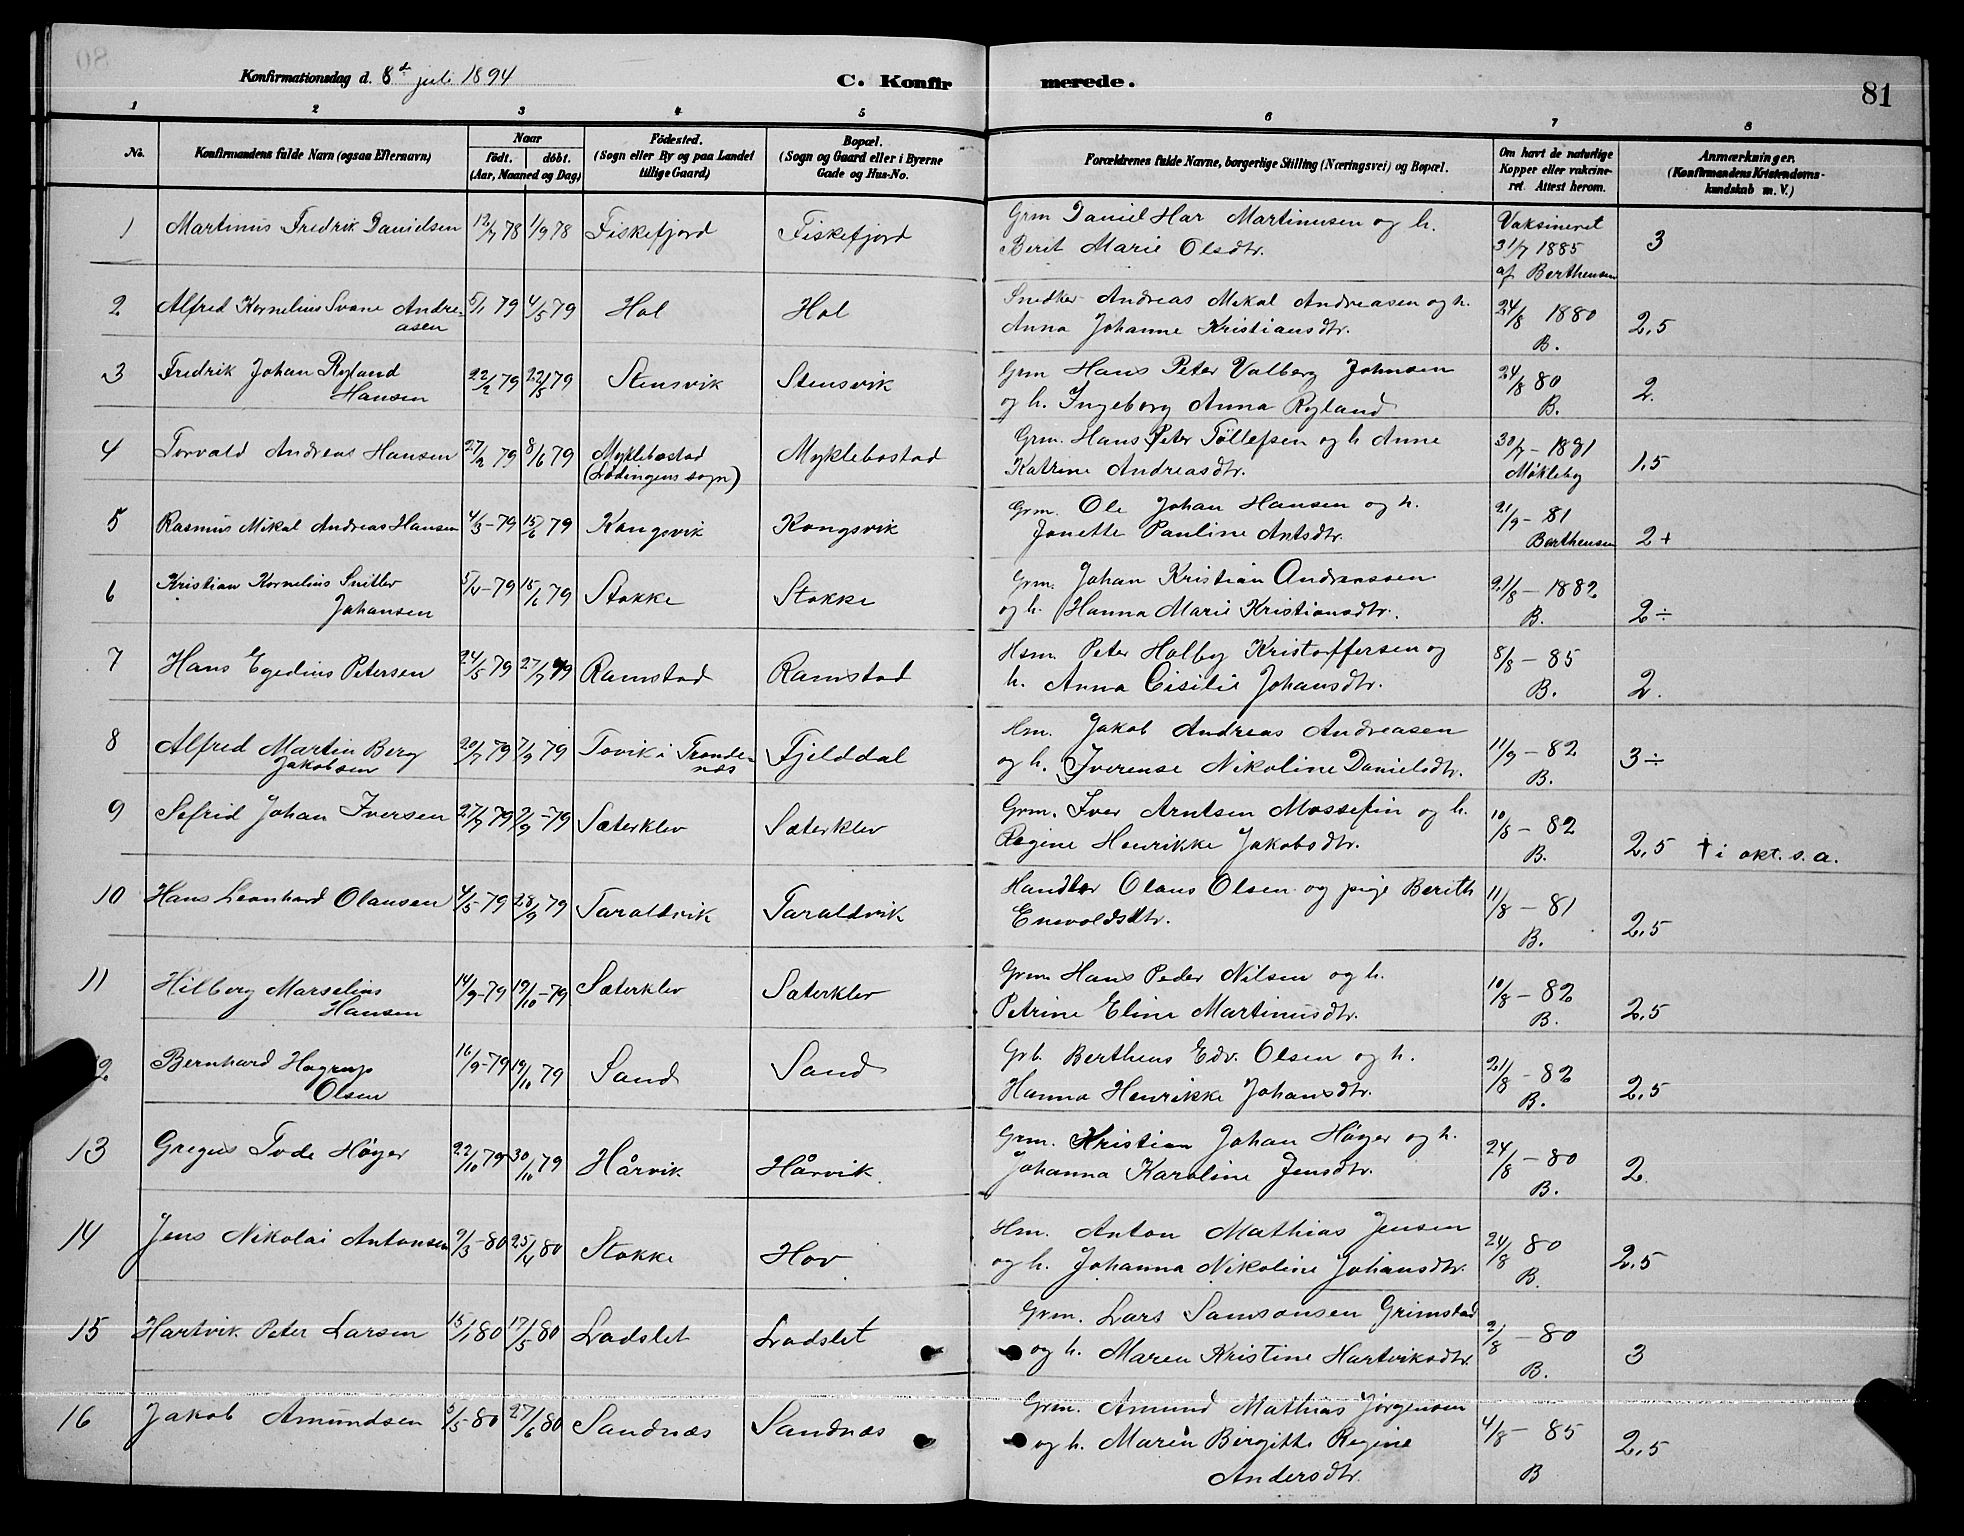 Konfirmationsdag d. 8de juli 1894 C. Konfir merede. 81
1 2 3 4 5 6 7 8
No. Konfirmandens fulde Navn (ogsaa Efternavn) Naar født. døbt. (Aar, Maaned og Dag) Fødested. (Sogn eller By og paa Landet tillige Gaard) Bopæl. (Sogn og Gaard eller i Byerne Gade og Hus-No. Forældrenes fulde Navne, borgerlige Stilling (Næringsvei) og Bopæl. Om havt de naturlige Kopper eller vakcineret. Attest herom. Anmærkninger. (Konfirmandens Kristendomskundskab m. V.)
1 Martinus Fredrik Danielsen 12/7 78 1/9 78 Fiskefjord Fiskefjord Grm Daniel Har Martinusen og h. Vaksineret 3
Berit Marie Olsdtr. 31/7 1885
af Berthensen
2 Alfred Kornelius Svane Andre- 5/1 79 4/5 79 Hol Hol Snedker Andreas Mikal Andreasen og h. 24/8 1880 2,5
asen Anna Johanne Kristiansdtr. B.
3 Fredrik Johan Ryland 22/2 79 22/5 79 Stensvik Stensvik Grm Hans Peter Valberg Johnsen 24/8 80 2.
Hansen og h. Ingeborg Anna Ryland B.
4 Torvald Andreas Hansen 27/2 79 8/6 79 Myklebostad Myklebostad Grm. Hans Peter Tøllefsen og h Anne 30/7 - 1881 1,5
(Lødingens sogn) Katrine Andreasdtr. Møkleby
5 Rasmus Mikal Andreas Hansen 4/3 - 79 15/6 79 Kongsvik Kongsvik Grm. Ole Johan Hansen og h. 21/9 - 81 2+
Jonette Pauline Antsdtr. Berthensen
6 Kristian Kornelius Snitlev 5/4 - 79 15/6 79 Stokke Stokke Grm. Johan Kristian Andreassen 21/8 - 1882 2÷
Johansen og h. Hanna Marie Kristiansdtr. B.
7 Hans Egedius Petersen 24/5 79 27/7 79 Ramstad Ramstad Hsm. Peter Holby Kristoffersen og 8/8 - 85 2.
h. Anna Cisilie Johansdtr. B.
8 Alfred Martin Berg 20/7 79 7/9 79 Tovik i Tronde- Fjelddal Hm. Jakob Andreas Andreasen 11/9 - 82 3÷
Jakobsen næs og h. Iverense Nikoline Danielsdtr. B.
9 Sefrid Johan Iversen 27/7 79 2/9 - 79 Sæterklev Sæterklev Grm. Iver Arntsen Mossefin og h. 10/8 - 82 2,5 † i okt. s. a.
Regine Henrikke Jakobsdtr. B.
10 Hans Leonhard Olausen 4/5 79 28/9 79 Taraldvik Taraldvik Handler Olaus Olsen og pige Berith 11/8 - 81 2,5
Envoldsdtr. B.
11 Hilberg Marselius 14/9 - 79 19/10 - 79 Sæterklev Sæterklev Grm Hans Peder Nilsen og h. 10/8 - 82 2,5
Hansen Petrine Eline Martinusdtr. B.
12 Bernhard Hagrup 16/9 - 79 19/10 79 Sand Sand Grb. Bertheus Edv. Olsen og h. 21/8 - 82 2,5
Olsen Hanna Henrikke Johansdtr. B.
13 Gregus Tode Høyer 22/10 79 30/10 79 Hårvik Hårvik. Grm. Kristian Johan Høyer og h. 24/8 - 80 2
Johanna Karoline Jensdtr. B.
14 Jens Nikolai Antonsen 9/3 - 80 25/4 80 Stokke Hov Hm. Anton Mathias Jensen 24/8 80 2,5
og h. Johanna Nikoline Johansdtr. B.
15 Hartvik Peter Larsen 15/1 80 17/5 80 Ladslet Ladslet Grm. Lars Samsonsen Grimstad 2/8 - 80 3
og h. Maren Kristine Hartviksdtr. B.
16 Jakob Amundsen 5/5 80 27/6 80 Sandnæs Sandnæs Grm. Amund Mathias Jørgensen 4/8 - 85 2,5
og h. Maren Birgitte Regine B
Andersdtr.